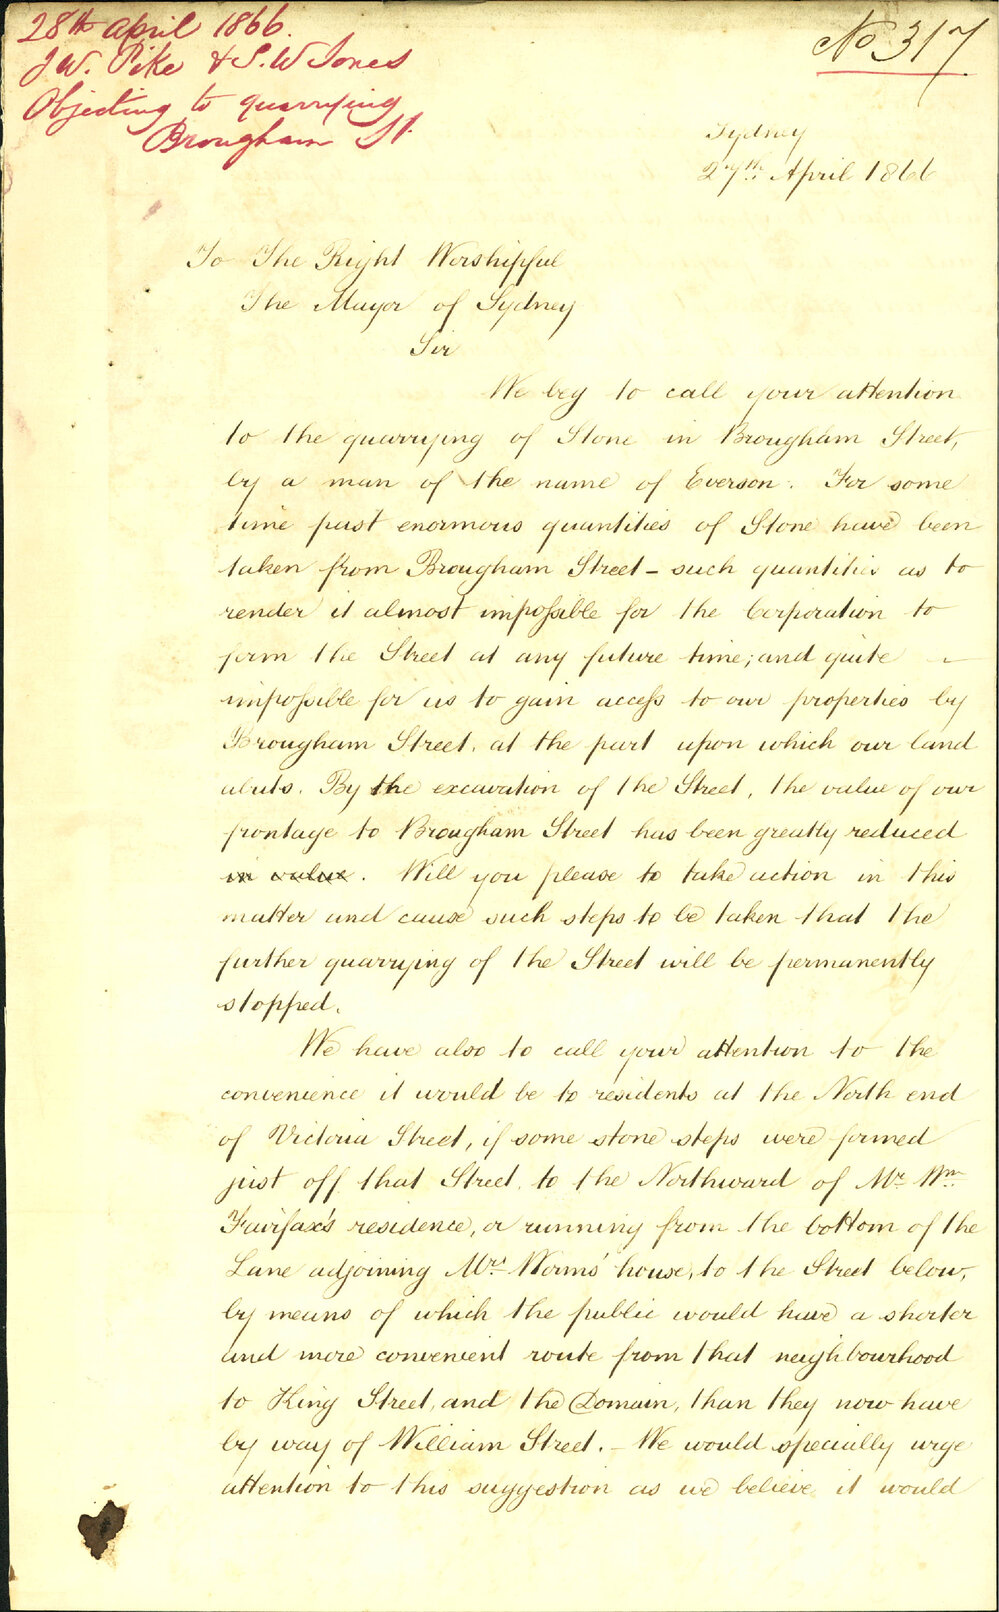 28th April 1866.
J W. Pike & S. W Jones
Objecting to quarrying
Brougham St.
No 317
Sydney
27th April 1866
To The Right Worshipful
The Mayor of Sydney
Sir
We beg to call your attention
to the quarrying of Stone in Brougham Street,
by a man of the name of Everson. For some
time past enormous quantities of Stone have been
taken from Brougham Street - such quantities as to
render it almost impossible for the Corporation to
form the Street at any future time; and quite
impossible for us to gain access to our properties by
Brougham Street, at the part upon which our land
abuts. By the excavation of the Street, the value of our
frontage to Brougham Street has been greatly reduced
in value. Will you please to take action in this
matter and cause such steps to be taken that the
further quarrying of the Street will be permanently
stopped.
We have also to call your attention to the
convenience it would be to residents at the North end
of Victoria Street, if some stone steps were formed
just off that Street, to the Northward of Mr. Wm.
Fairfax's residence, or running from the bottom of the
Lane adjoining Mrs. Worms' house, to the Street below,
by means of which the public would have a shorter
and more convenient route from that neighbourhood
to King Street, and the Domain, than they now have
by way of William Street. - We would specially urge
attention to this suggestion as we believe it would